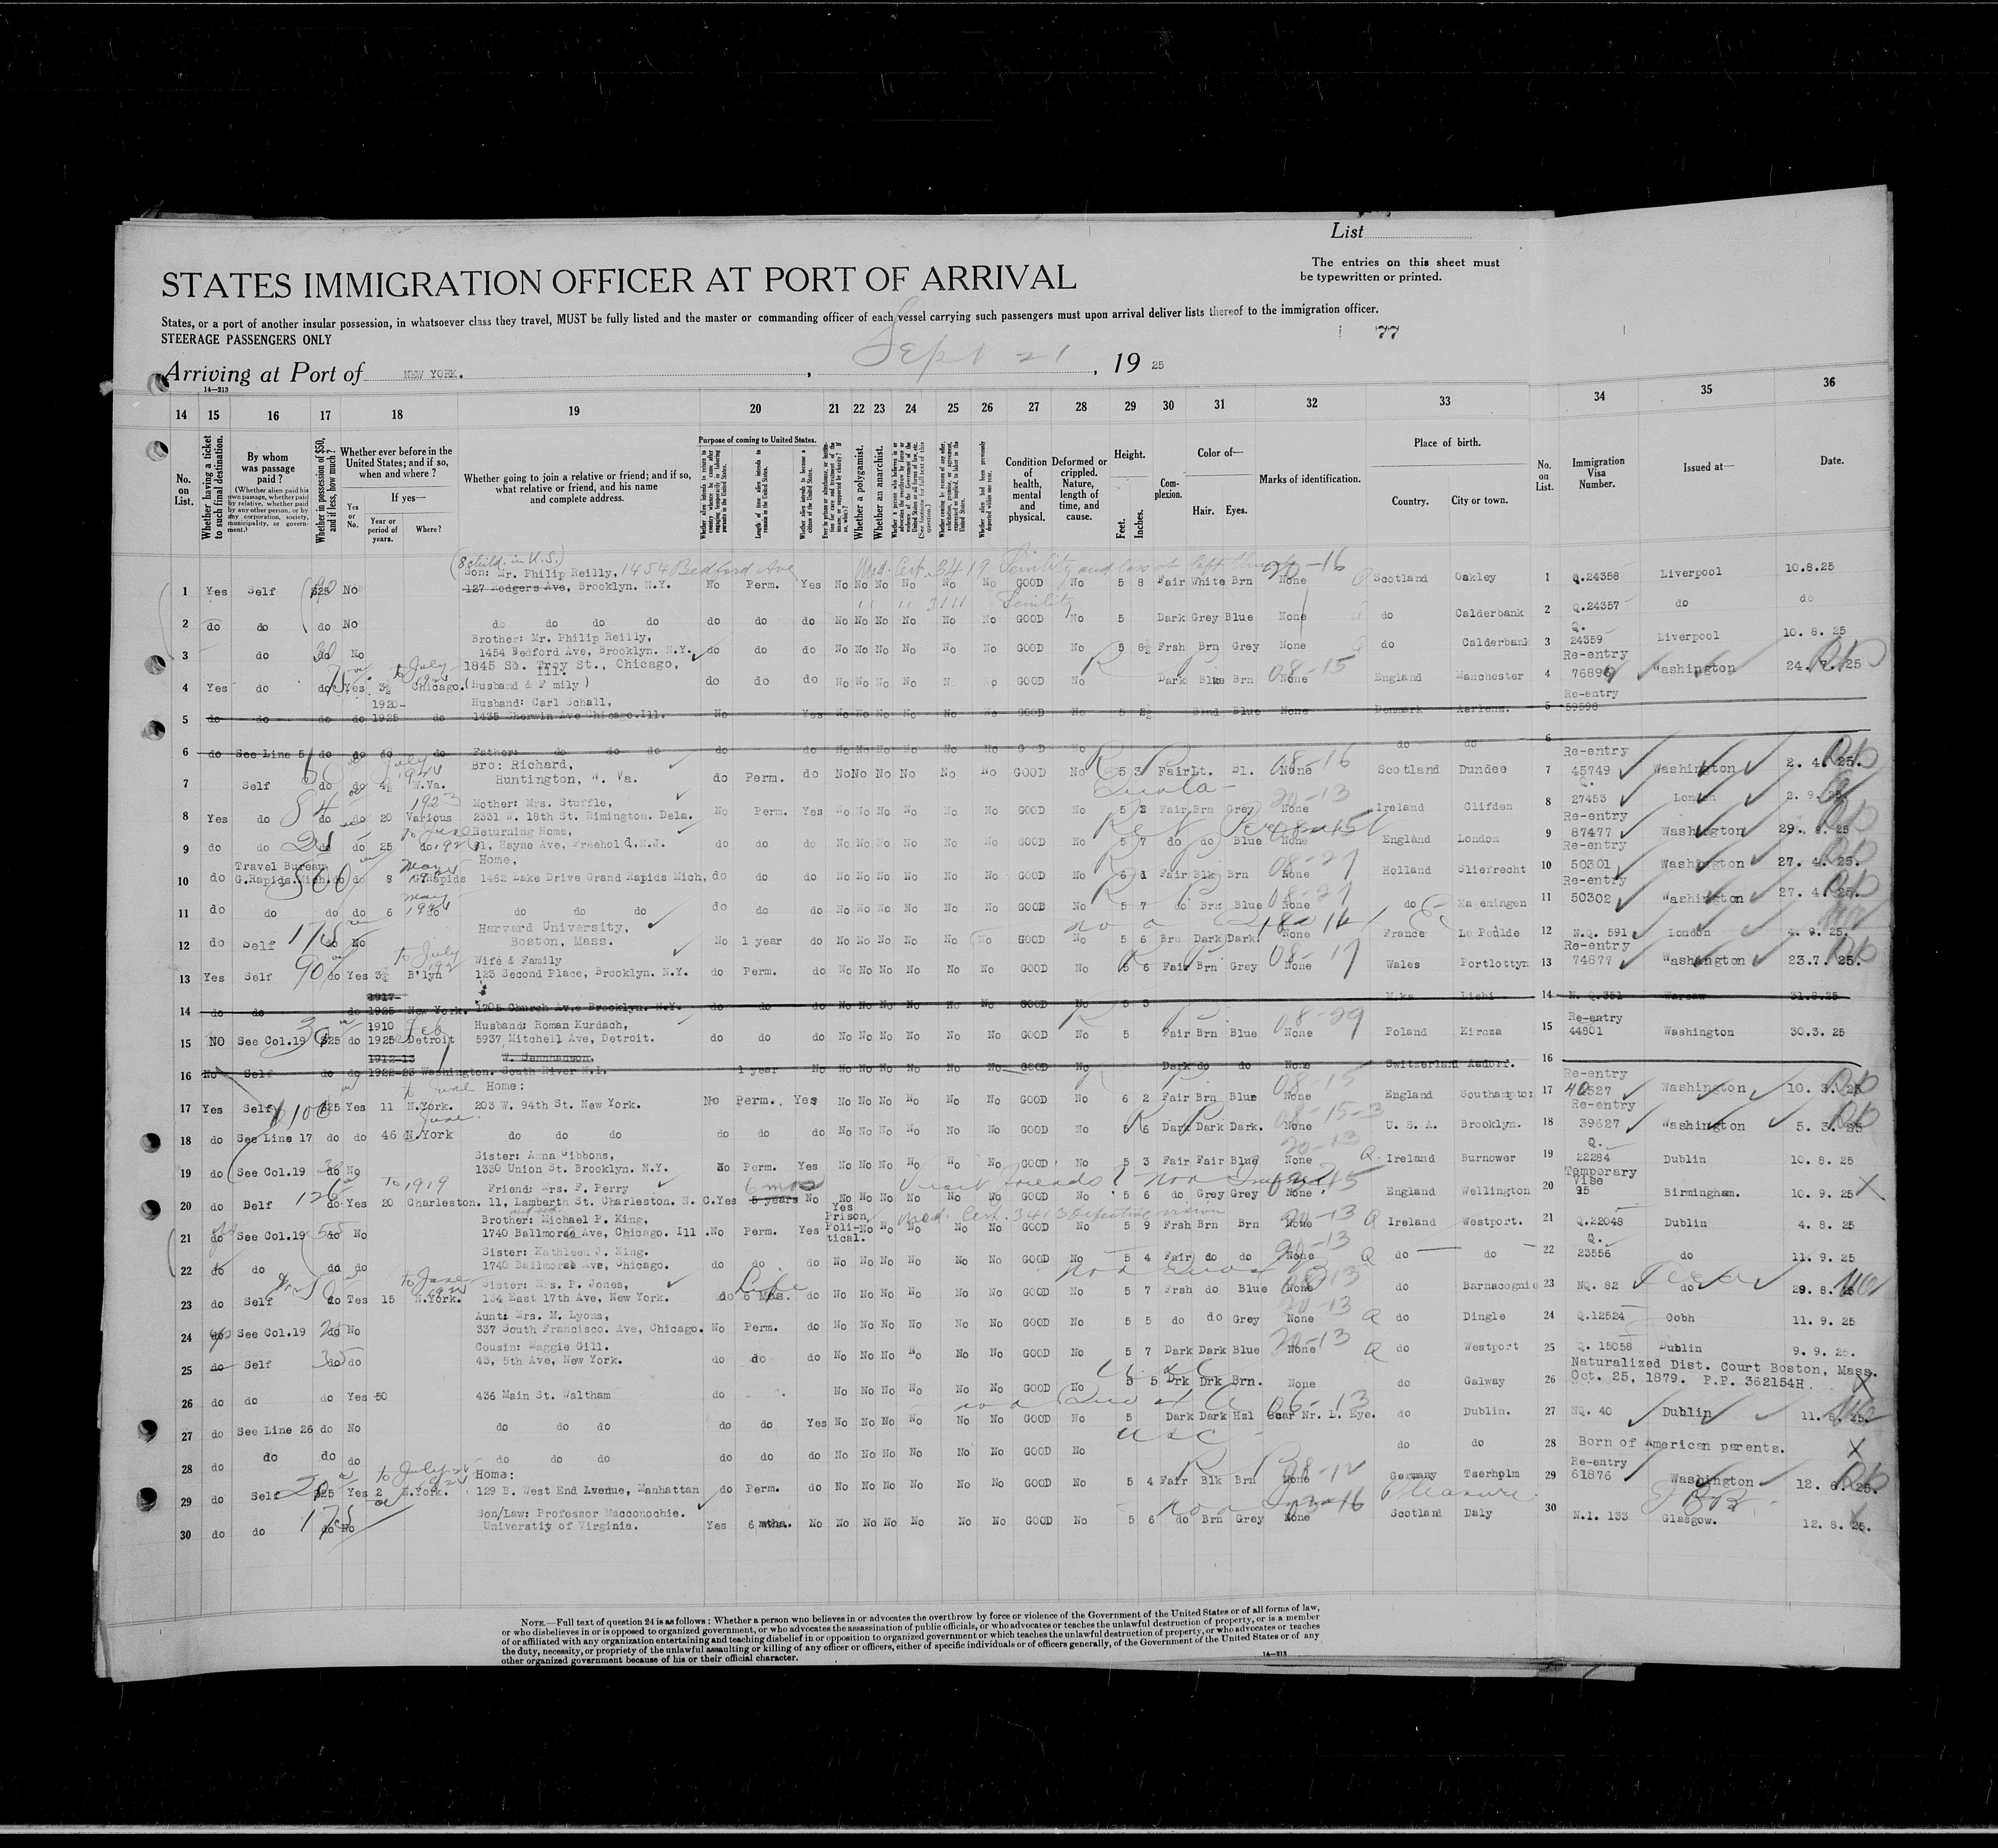 List
The entries on this sheet must
be typewritten or printed.
STATES IMMIGRATION OFFICER AT PORT OF ARRIVAL
States, or a port of another insular possession, in whatsoever class they travel, MUST be fully listed and the master or commanding officer of each vessel carrying such passengers must upon arrival deliver lists thereof to the immigration officer.
STEERAGE PASSENGERS ONLY
77
Arriving at Port of NEW YORK. , Sept 21 , 19 25
14—213
14 15 16 17 18 19 20 21 22 23 24 25 26 27 28 29 30 31 32 33 34 35 36
No. on List.
Whether having a ticket to such final destination.
By whom was passage paid?
(Whether alien paid his own passage, whether paid by relative, whether paid by any other person, or by any corporation, society, municipality, or government.)
Whether in possession of $50, and if less, how much?
Whether ever before in the United States; and if so, when and where?
Yes or No.
If yes—
Year or period of years.
Where?
Whether going to join a relative or friend; and if so, what relative or friend, and his name and complete address.
Purpose of coming to United States.
Length of time alien intends to remain in the United States.
Whether alien intends to become a citizen of the United States.
Whether a polygamist.
Whether an anarchist.
Condition of health, mental and physical.
Deformed or crippled. Nature, length of time, and cause.
Height.
Feet. Inches.
Complexion.
Color of—
Hair. Eyes.
Marks of identification.
Place of birth.
Country. City or town.
No. on List.
Immigration Visa Number.
Issued at—
Date.
(8 child. in U.S.) Med. Cert. 3419 Senility and loss of left thumb
Son: Mr. Philip Reilly, 1454 Bedford Ave
1 Yes Self $25 No 127 Rodgers Ave, Brooklyn. N.Y. No Perm. Yes No No No No No No GOOD No 5 8 Fair White Brn None 20-16 Q Scotland Oakley 1 Q.24358 Liverpool 10.8.25
Senility
2 do do do No do do do do do do do No No No No No No GOOD No 5 Dark Grey Blue None do Calderbank 2 Q.24357 do do
Brother: Mr. Philip Reilly, Q.
3 do do No 1454 Bedford Ave, Brooklyn. N.Y. do do do No No No No No No GOOD No 5 6½ Frsh Brn Grey None do Calderbank 3 24359 Liverpool 10. 8. 25
1845 So. Troy St., Chicago, Ill. Re-entry
4 Yes do do Yes 3½ Chicago. (Husband & F mily) do do do No No No No No No GOOD No Dark Blue Brn None 08-15 England Manchester 4 76896 Washington 24. 7. 25
1920- Husband: Carl Schall, Re-entry
5 do do do do 1925 do 1435 Sherwin Ave Chicago.Ill. No Yes No No No No No No GOOD No 5 2½ Blnd Blue None Denmark 5 59598
6 do See Line 5 do do do do Father: do do do do do No No No No No No GOOD No do do 6
July 1924 Bro: Richard, Re-entry
7 Self do do 4½ W.Va. Huntington, W. Va. do Perm. do No No No No No No GOOD No 5 3 Fair Lt. Bl. None 08-16 Scotland Dundee 7 45749 Washington 2. 4. 25.
1923 Mother: Mrs. Stuffle, Quota Q.
8 Yes do do do 20 Various 2331 W. 18th St. Rimington. Dela. No Perm. Yes No No No No No No GOOD No 5 3 Fair Brn Grey None 20-13 Ireland Clifden 8 27453 London 2. 9. 25
to June 1925 Returning Home, Re-entry
9 do do do do 25 do 61, Hayne Ave, Freehold,N.J. do do do No No No No No No GOOD No 5 7 do do Blue None 08-15 England London 9 87477 Washington 29. 8. 25
Travel Bureau May 1924 Home, Re-entry
10 do G.Rapids.Mich. do do 8 G.Rapids 1462 Lake Drive Grand Rapids Mich, do do do No No No No No No GOOD No 6 1 Fair Blk Brn None 08-27 Holland Sliefrecht 10 50301 Washington 27. 4. 25.
May 1924 Re-entry
11 do do do do 6 do do do do do do do No No No No No No GOOD No 5 7 do Brn Blue None 08-27 do 11 50302 Washington 27. 4. 25.
Harvard University,
12 do Self 175 do No Boston, Mass. No 1 year do No No No No No No GOOD No 5 6 Brn Dark Dark. France Le Poulde 12 N.Q. 591 London 4. 9. 25.
to July Wife & Family Re-entry
13 Yes Self 90 do Yes 3½ B'lyn 123 Second Place, Brooklyn. N.Y. do Perm. do No No No No No No GOOD No 5 6 Fair Brn Grey None 08-17 Wales Portlottyn 13 74877 Washington 23.7. 25.
1917-
14 do do do 1925 New York. 1705 Church Ave Brooklyn. N.Y. do do do No No No No No No GOOD No 5 3 14 N. Q.351 Warsaw 31.8.25
1910 Feb Husband: Roman Kurdach, Re-entry
15 NO See Col.19 $25 do 1925 Detroit 5937 Mitchell Ave, Detroit. do do do No No No No No No GOOD No 5 Fair Brn Blue None 08-29 Poland Kircza 15 44801 Washington 30.3. 25
1912-13
16 No Self do do 1922-23 Washington. South River N.I. 1 year No No No No No No No GOOD No Dark do do None Switzerland Aadorf. 16
to June Home: Re-entry
17 Yes Self 100 $25 Yes 11 N.York. 203 W. 94th St. New York. No Perm. Yes No No No No No No GOOD No 6 2 Fair Brn Blue None 08-15 England Southampton 17 40527 Washington 10. 3. 25
June Re-entry
18 do See Line 17 do do 46 N.York do do do do do do No No No No No No GOOD No 5 6 Dark Dark Dark. None 08-15-3 U. S. A. Brooklyn. 18 39627 Washington 5. 3. 25
Sister: Anna Gibbons, Q.
19 do See Col.19 do No 1330 Union St. Brooklyn. N.Y. No Perm. Yes No No No No No No GOOD No 5 3 Fair Fair Blue None 20-13 Q Ireland Burnower 19 22284 Dublin 10. 8. 25
To 1919 Friend: Mrs. F. Perry 6 mos Visit friends Temporary Vise
20 do Self do Yes 20 Charleston. 11, Lamberth St. Charleston. N. C. Yes 5 years No No No No No No No GOOD No 5 6 do Grey Grey None England Wellington 20 95 Birmingham. 10. 9. 25 X
Brother: Michael P. King, Yes Prison Political. Med. Cert. 3413 Defective vision
21 do See Col.19 do No 1740 Ballmorse Ave, Chicago. Ill. No Perm. Yes No No No No No GOOD No 5 9 Frsh Brn Brn None 20-13 Q Ireland Westport. 21 Q.22048 Dublin 4. 8. 25
Sister: Kathleen J. King. Q.
22 do do do do 1740 Ballmorse Ave, Chicago. do do do No No No No No No GOOD No 5 4 Fair do do None 20-13 Q do do 22 23556 do 11. 9. 25
to June 1924 Sister: Mrs. P. Jones, Life
23 do Self do Yes 15 N.York. 134 East 17th Ave, New York. do 6 Mos. do No No No No No No GOOD No 5 7 Frsh do Blue None do Barnacognie 23 NQ. 82 do 29. 8. 25
Aunt: Mrs. M. Lyons,
24 do See Col.19 do No 337 South Francisco. Ave, Chicago. No Perm. do No No No No No No GOOD No 5 5 do do Grey None 20-13 Q do Dingle 24 Q.12524 Cobh 11. 9. 25
Cousin: Maggie Gill.
25 do Self do do 43, 5th Ave, New York. do do do No No No No No No GOOD No 5 7 Dark Dark Blue None 20-13 Q do Westport 25 Q. 15058 Dublin 9. 9. 25.
Naturalized Dist. Court Boston, Mass.
26 do do do Yes 50 436 Main St. Waltham do No No No No No No GOOD No 5 5 Drk Drk Brn. None do Galway 26 Oct. 25, 1879. P.P. 362154H. X
27 do See Line 26 do No do do do do do Yes No No No No No No GOOD No 5 Dark Dark Hzl Scar Nr. L. Eye. 06-13 do Dublin. 27 NQ. 40 Dublin 11. 8. 25.
28 do do do do do do do do do do No No No No No No GOOD No do do 28 Born of American parents. X
to July Home: Re-entry
29 do Self $25 Yes 2 N.York. 129 B. West End Avenue, Manhattan do Perm. do No No No No No No GOOD No 5 4 Fair Blk Brn None Germany Tserholm 29 61876 Washington 12. 6. 25.
Son/Law: Professor Macconochie. Pleasure
30 do do 175 do No Universtiy of Virginia. Yes 6 mths. No No No No No No No GOOD No 5 6 do Brn Grey None Scotland Daly 30 N.I. 133 Glasgow. 12. 8. 25.
NOTE.—Full text of question 24 is as follows: Whether a person who believes in or advocates the overthrow by force or violence of the Government of the United States or of all forms of law,
or who disbelieves in or is opposed to organized government, or who advocates the assassination of public officials, or who advocates or teaches the unlawful destruction of property, or is a member
of or affiliated with any organization entertaining and teaching disbelief in or opposition to organized government or which teaches the unlawful destruction of property, or who advocates or teaches
the duty, necessity, or propriety of the unlawful assaulting or killing of any officer or officers, either of specific individuals or of officers generally, of the Government of the United States or of any
other organized government because of his or their official character.
14—213